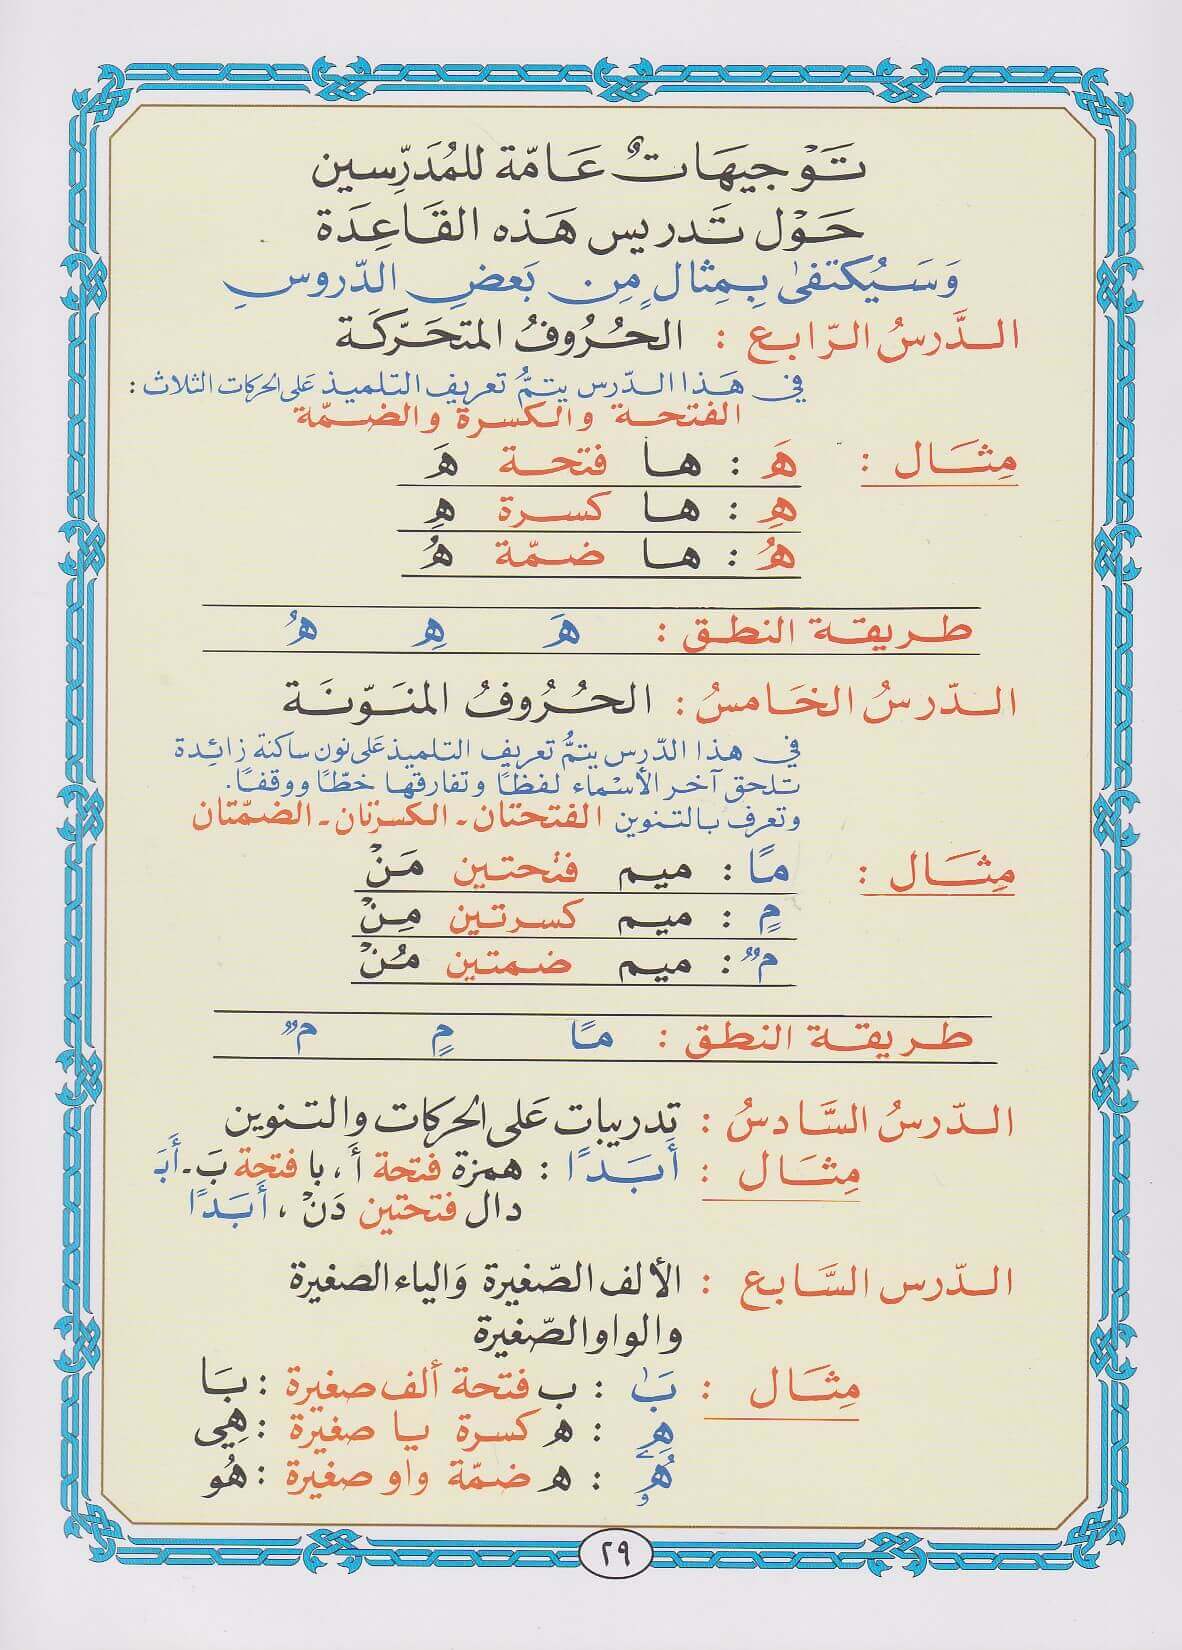 تَوْجيهَاتٌ عَامّة للمُدَرِّسين
حَوْل تَدريس هَذه القَاعِدَة
وَسَيُكتفىٰ بِمِثالٍ مِن بَعضِ الدّروسِ
الدَّرسُ الرّابع : الحُرُوفُ المتحَرّكَة
في هَذا الدّرس يتمُّ تعريف التلميذ عَلى الحركات الثلاث :
الفتحة والكسرة والضمّة
مِثَال : هَ : ها فتحة هَ
هِ : ها كسرة هِ
هُ : ها ضمّة هُ
طريقة النطق : هَ هِ هُ
الدّرسُ الخَامسُ : الحُرُوفُ المنَوّنَة
في هذا الدّرس يتمُّ تعريف التلميذ عَلى نون ساكنة زائِدة
تلحق آخر الأسْماء لفظًا وتفارقها خطًّا ووقفًا.
وتعرف بالتنوين الفتحتان - الكسرتان - الضمّتان
مِثَال : مًا : ميم فتحتين مَنْ
مٍ : ميم كسرتين مِنْ
مٌ : ميم ضمتين مُنْ
طريقة النطق : مًا مٍ مٌ
الدّرسُ السَّادسُ : تدريبات عَلى الحركات والتنوين
مِثَال : أَبَدًا : همزة فتحة أَ ، با فتحة بَ - أَبَ
دال فتحتين دَنْ ، أَبَدًا
الدّرس السَّابع : الألف الصّغيرة وَالياء الصغيرة
والواو الصّغيرة
مِثَال : بَٰ : ب فتحة ألف صغيرة : بَا
هِۦ : ه كسرة يا صغيرة : هِي
هُۥ : ه ضمّة واو صغيرة : هُو
٢٩